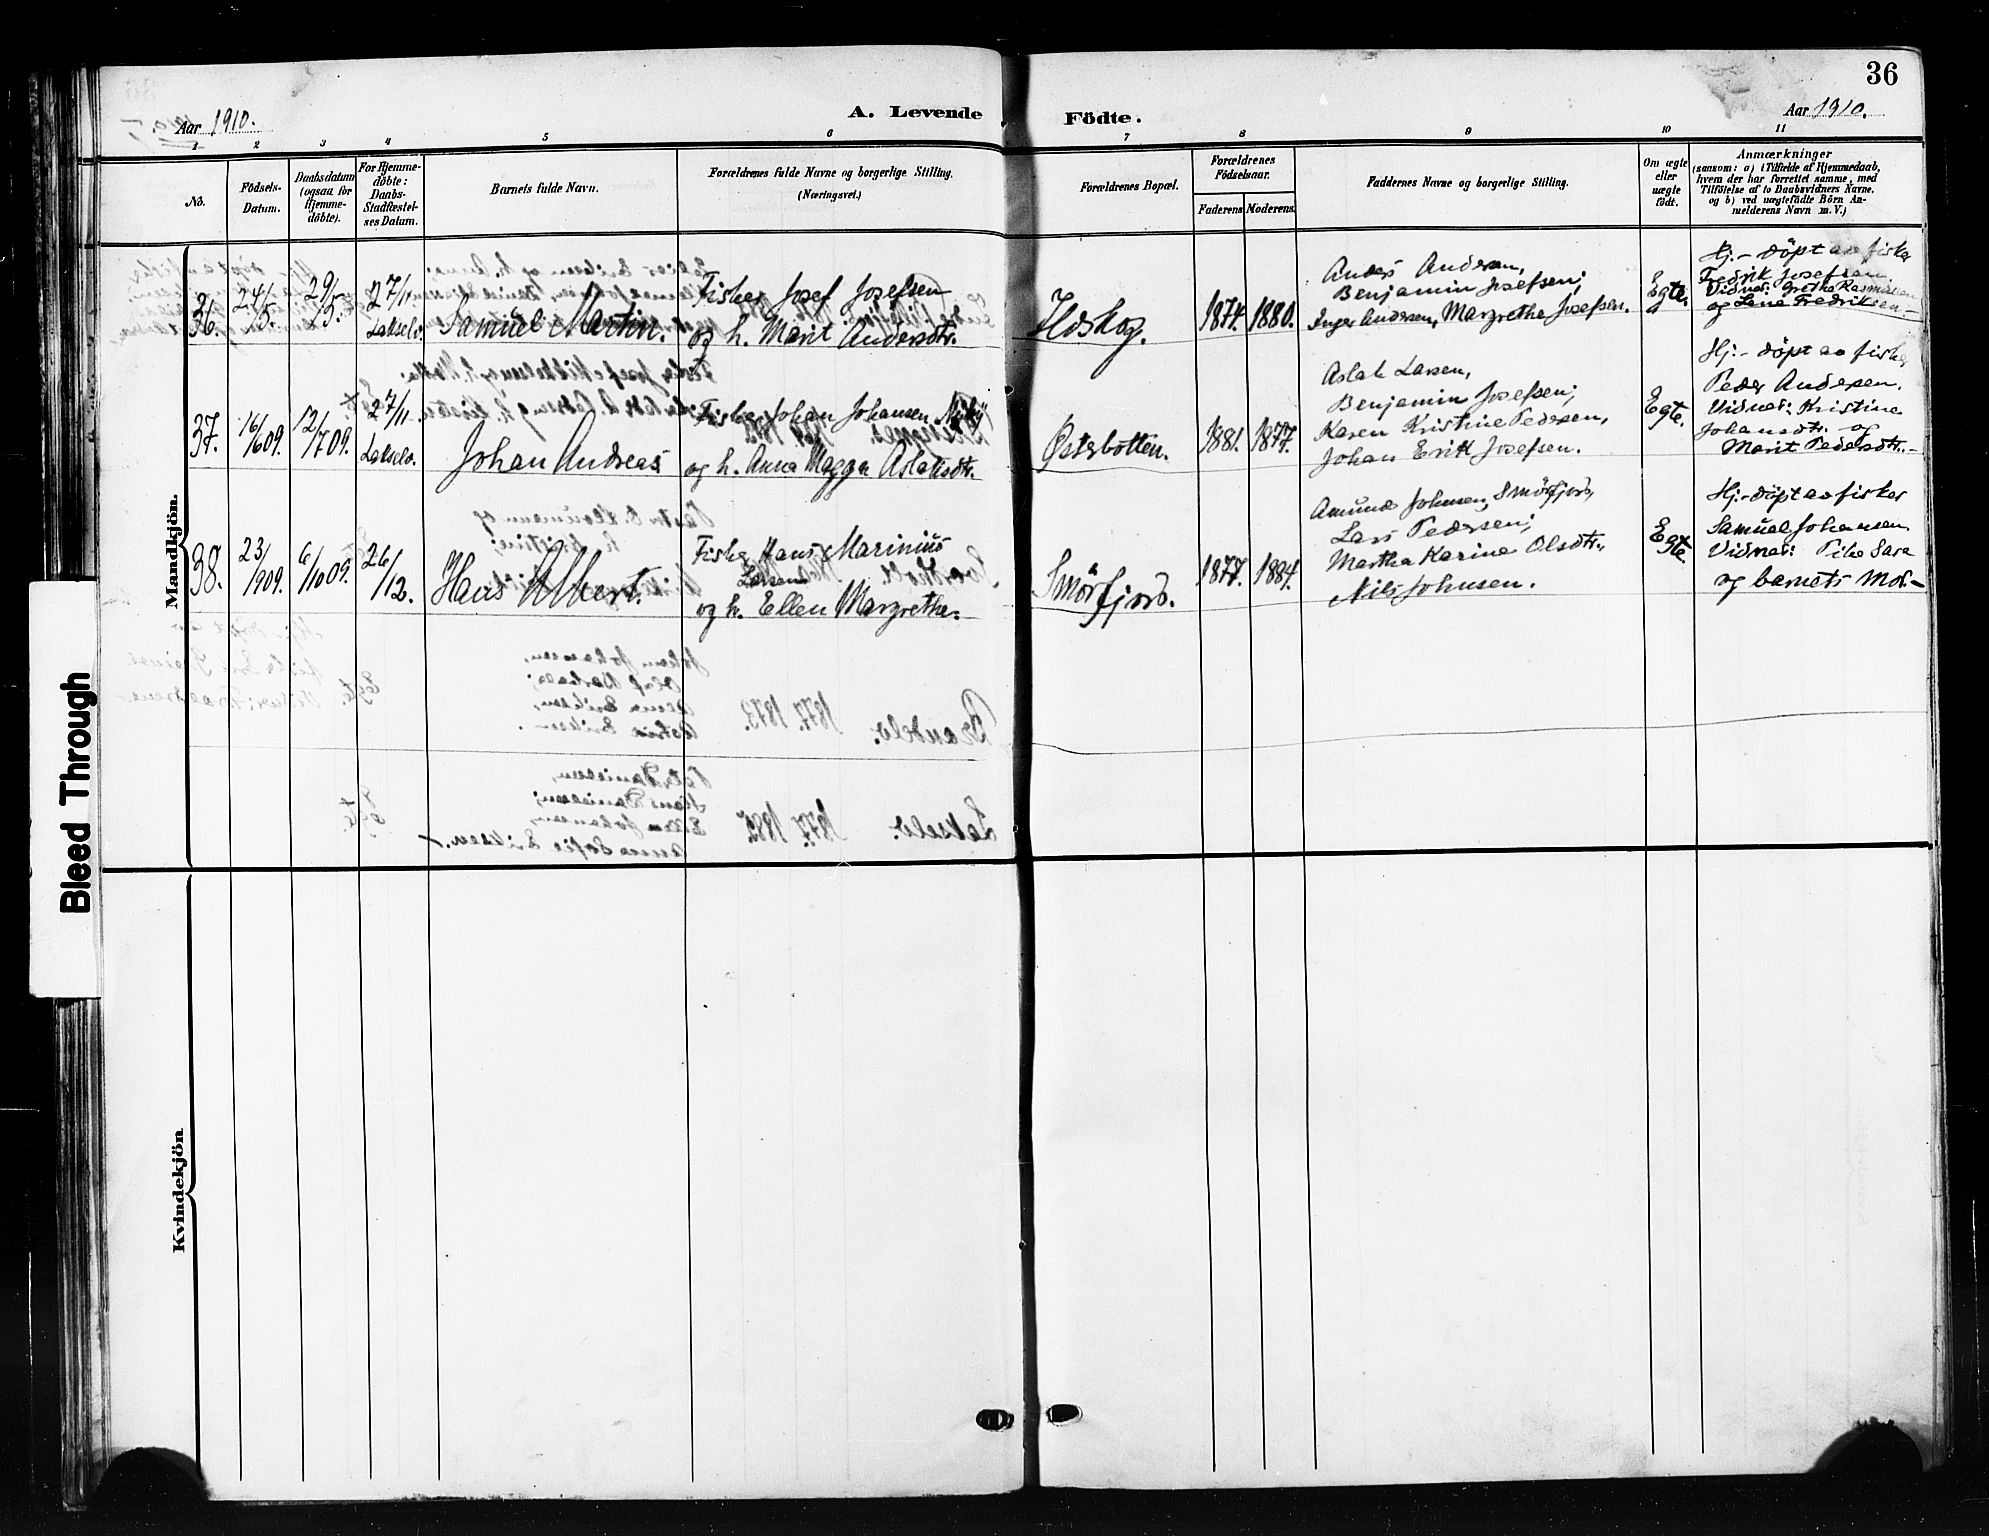 36
A. Levende Födte.
Aar 1910.
Aar 1910.
1 2 3 4 5 6 7 8 9 10 11
No.
Födsels-
Datum.
Daabsdatum
(ogsaa för
Hjemme-
döbte).
For Hjemme-
döbte:
Daabs-
Stadfæstel-
ses Datum.
Barnets fulde Navn.
Forældrenes fulde Navne og borgerlige Stilling.
(Næringsvei.)
Forældrenes Bopæl.
Forældrenes
Födselsaar.
Faderens Moderens.
Faddernes Navne og borgerlige Stilling.
Om ægte
eller
uægte
födt.
Anmærkninger
(saasom: a) i Tilfælde af Hjemmedaab,
hvem der har forrettet samme, med
Tilföielse af to Daabsvidners Navne.
og b) ved uægtefödte Börn An-
melderens Navn m.V.)
Mandkjön.
36.
24/5.
29/5.
27/11.
Lakselv.
Samuel Martin.
Fisker Josef Josefsen
og h. Marit Andersdtr.
Ildskog.
1874. 1880.
Anders Andersen,
Benjamin Josefsen;
Inger Andersen, Margrethe Josefsen.
Egte.
Hj.- döpt av fisker
Fredrik Josefsen.
Vidner: Grethe Rasmussen
og Lena Fredriksen.-
37.
16/609.
12/709.
27/11.
Lakselv.
Johan Andreas
Fisker Johan Johansen Niky
og h. Anna Magga Aslaksdtr.
Østerbotten.
1881. 1877.
Aslak Larsen,
Benjamin Josefsen;
Karen Kristine Pedersen,
Johan Erik Josefsen.
Egte.
Hj.- döpt av fisker
Peder Andersen.
Vidner: Kristine
Johansdtr. og
Marit Pedersdtr.-
38.
23/909.
6/1009.
26/12.
Hans Albert.
Fisker Hans Marinius
Larsen
og h. Ellen Margrethe.
Smörfjord.
1877. 1884.
Amund Johnsen, Smörfjord,
Lars Pedersen;
Martha Karine Olsdtr.,
Nils Johnsen.
Egte.
Hj.- döpt av fisker
Samuel Johansen
Vidner: Pike Sara
og barnets Mor.-
Kvindekjön
Bleed Through